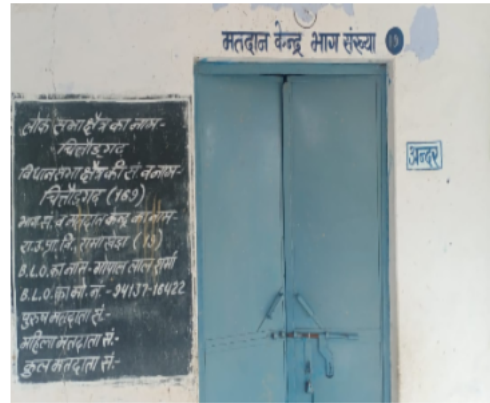 मतदान केन्द्र भाग संख्या
लोक सभा क्षेत्र का नाम-
चित्तौड़गढ़
विधानसभा क्षेत्र की सं. व नाम-
चित्तौड़गढ़ (169)
भाग सं. व मतदान केन्द्र का नाम-
रा.उ.प्रा.वि., रामाखेड़ा (19)
B.L.O. का नाम- गोपाल लाल शर्मा
B.L.O. का मो. नं. - 94137-16422
पुरुष मतदाता सं.-
महिला मतदाता सं.-
कुल मतदाता सं.-
अन्दर